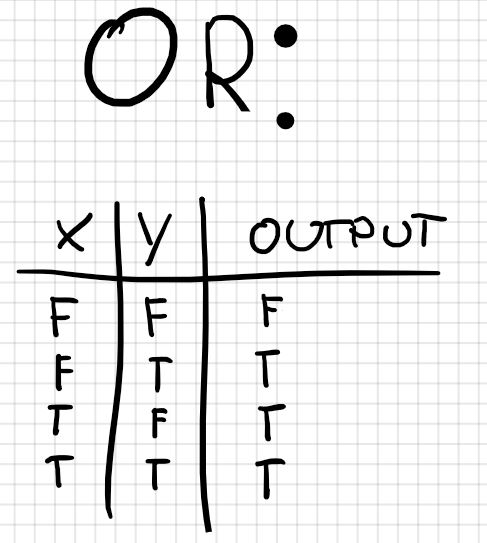 OR:
X Y OUTPUT
F F F
F T T
T F T
T T T